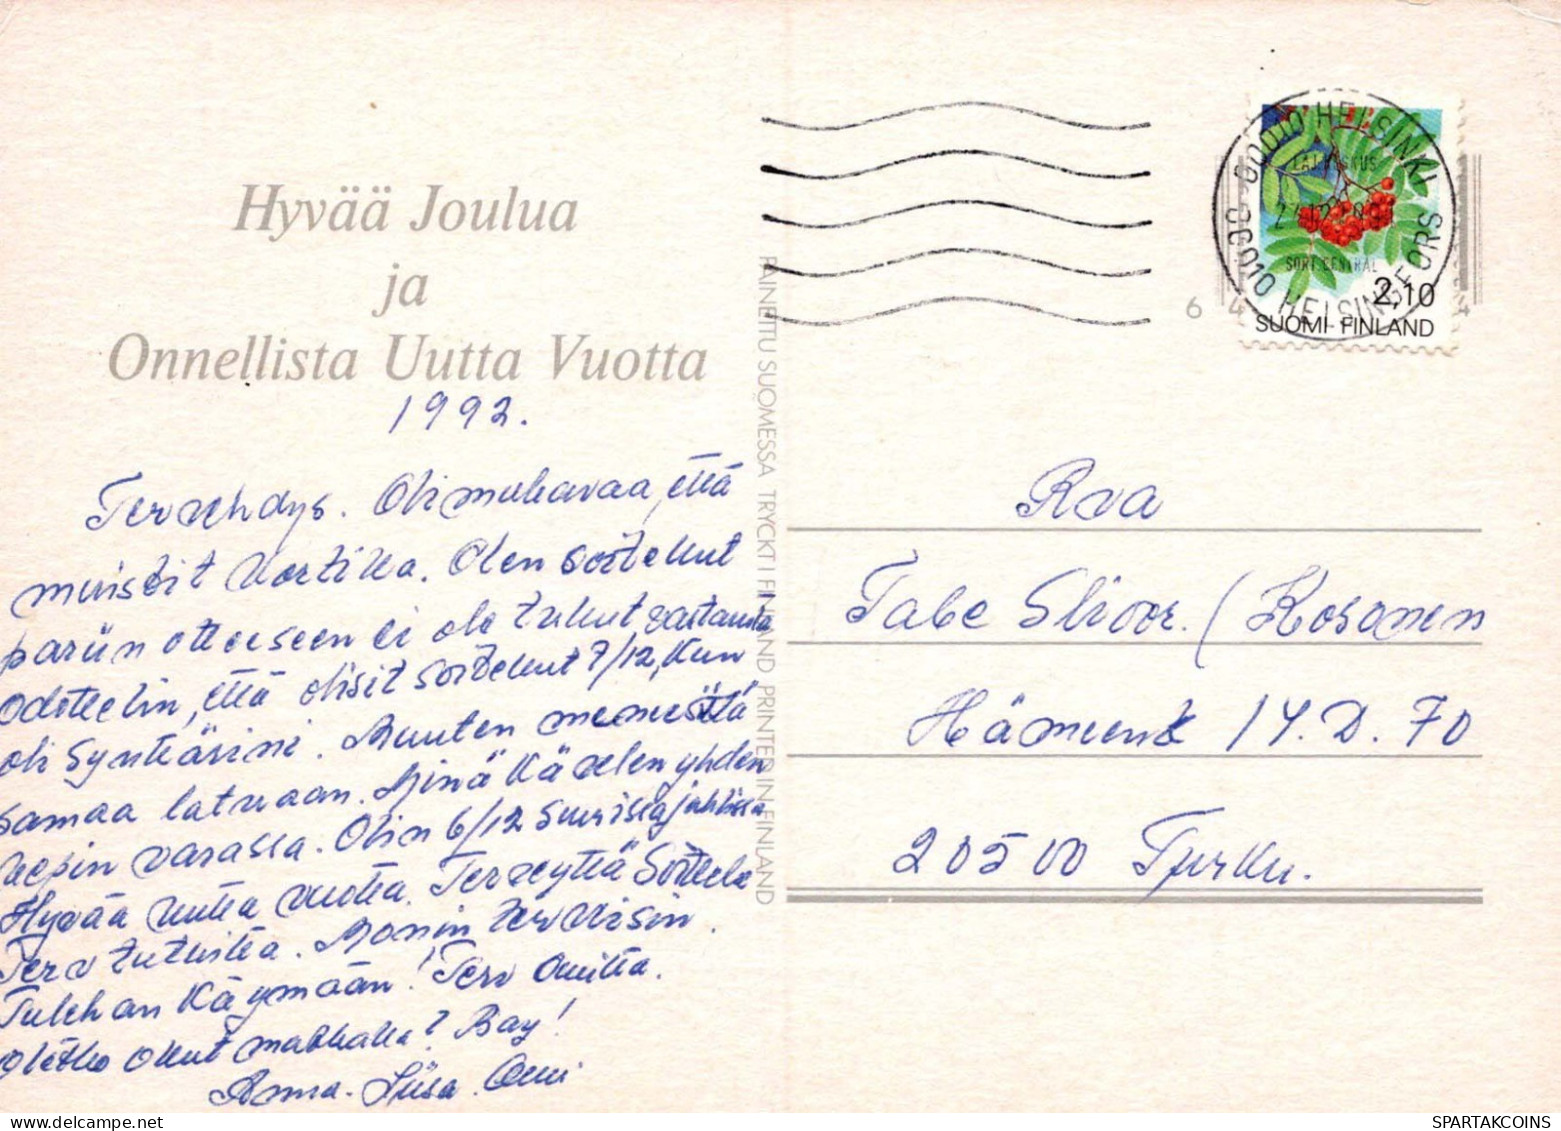 Hyvää Joulua
ja
Onnellista Uutta Vuotta
1992.
Tervehdys. Oli mukavaa, että
muistit kortilla. Olen soitellut
pariin otteeseen ei ole tullut vastausta
odottelin, että olisit soitellut 7/12, kun
oli Synttärini. Muuten
samaa latuaan. Minä kävelen yhden
kepin varassa. Olin 6/12
Hyvää uutta vuotta. Terveyttä Soittele
Terv tutuilta. Monin terveisin.
Tulehan Käymään! Terv Omilta.
oletko ollut matkalla? Bay!
Anna-Liisa. Omi
PAINETTU SUOMESSA TRYCKT I FINLAND PRINTED IN FINLAND
00010 HELSINKI
LAJ.KESKUS
SORT.CENTRAL
00010 HELSINGFORS
2,10
SUOMI-FINLAND
6
Rva
Tabe Slioor. (Kosonen
Hämeenk 14. D. 70
20500 Turku.
SPARTAKCOINS.COM